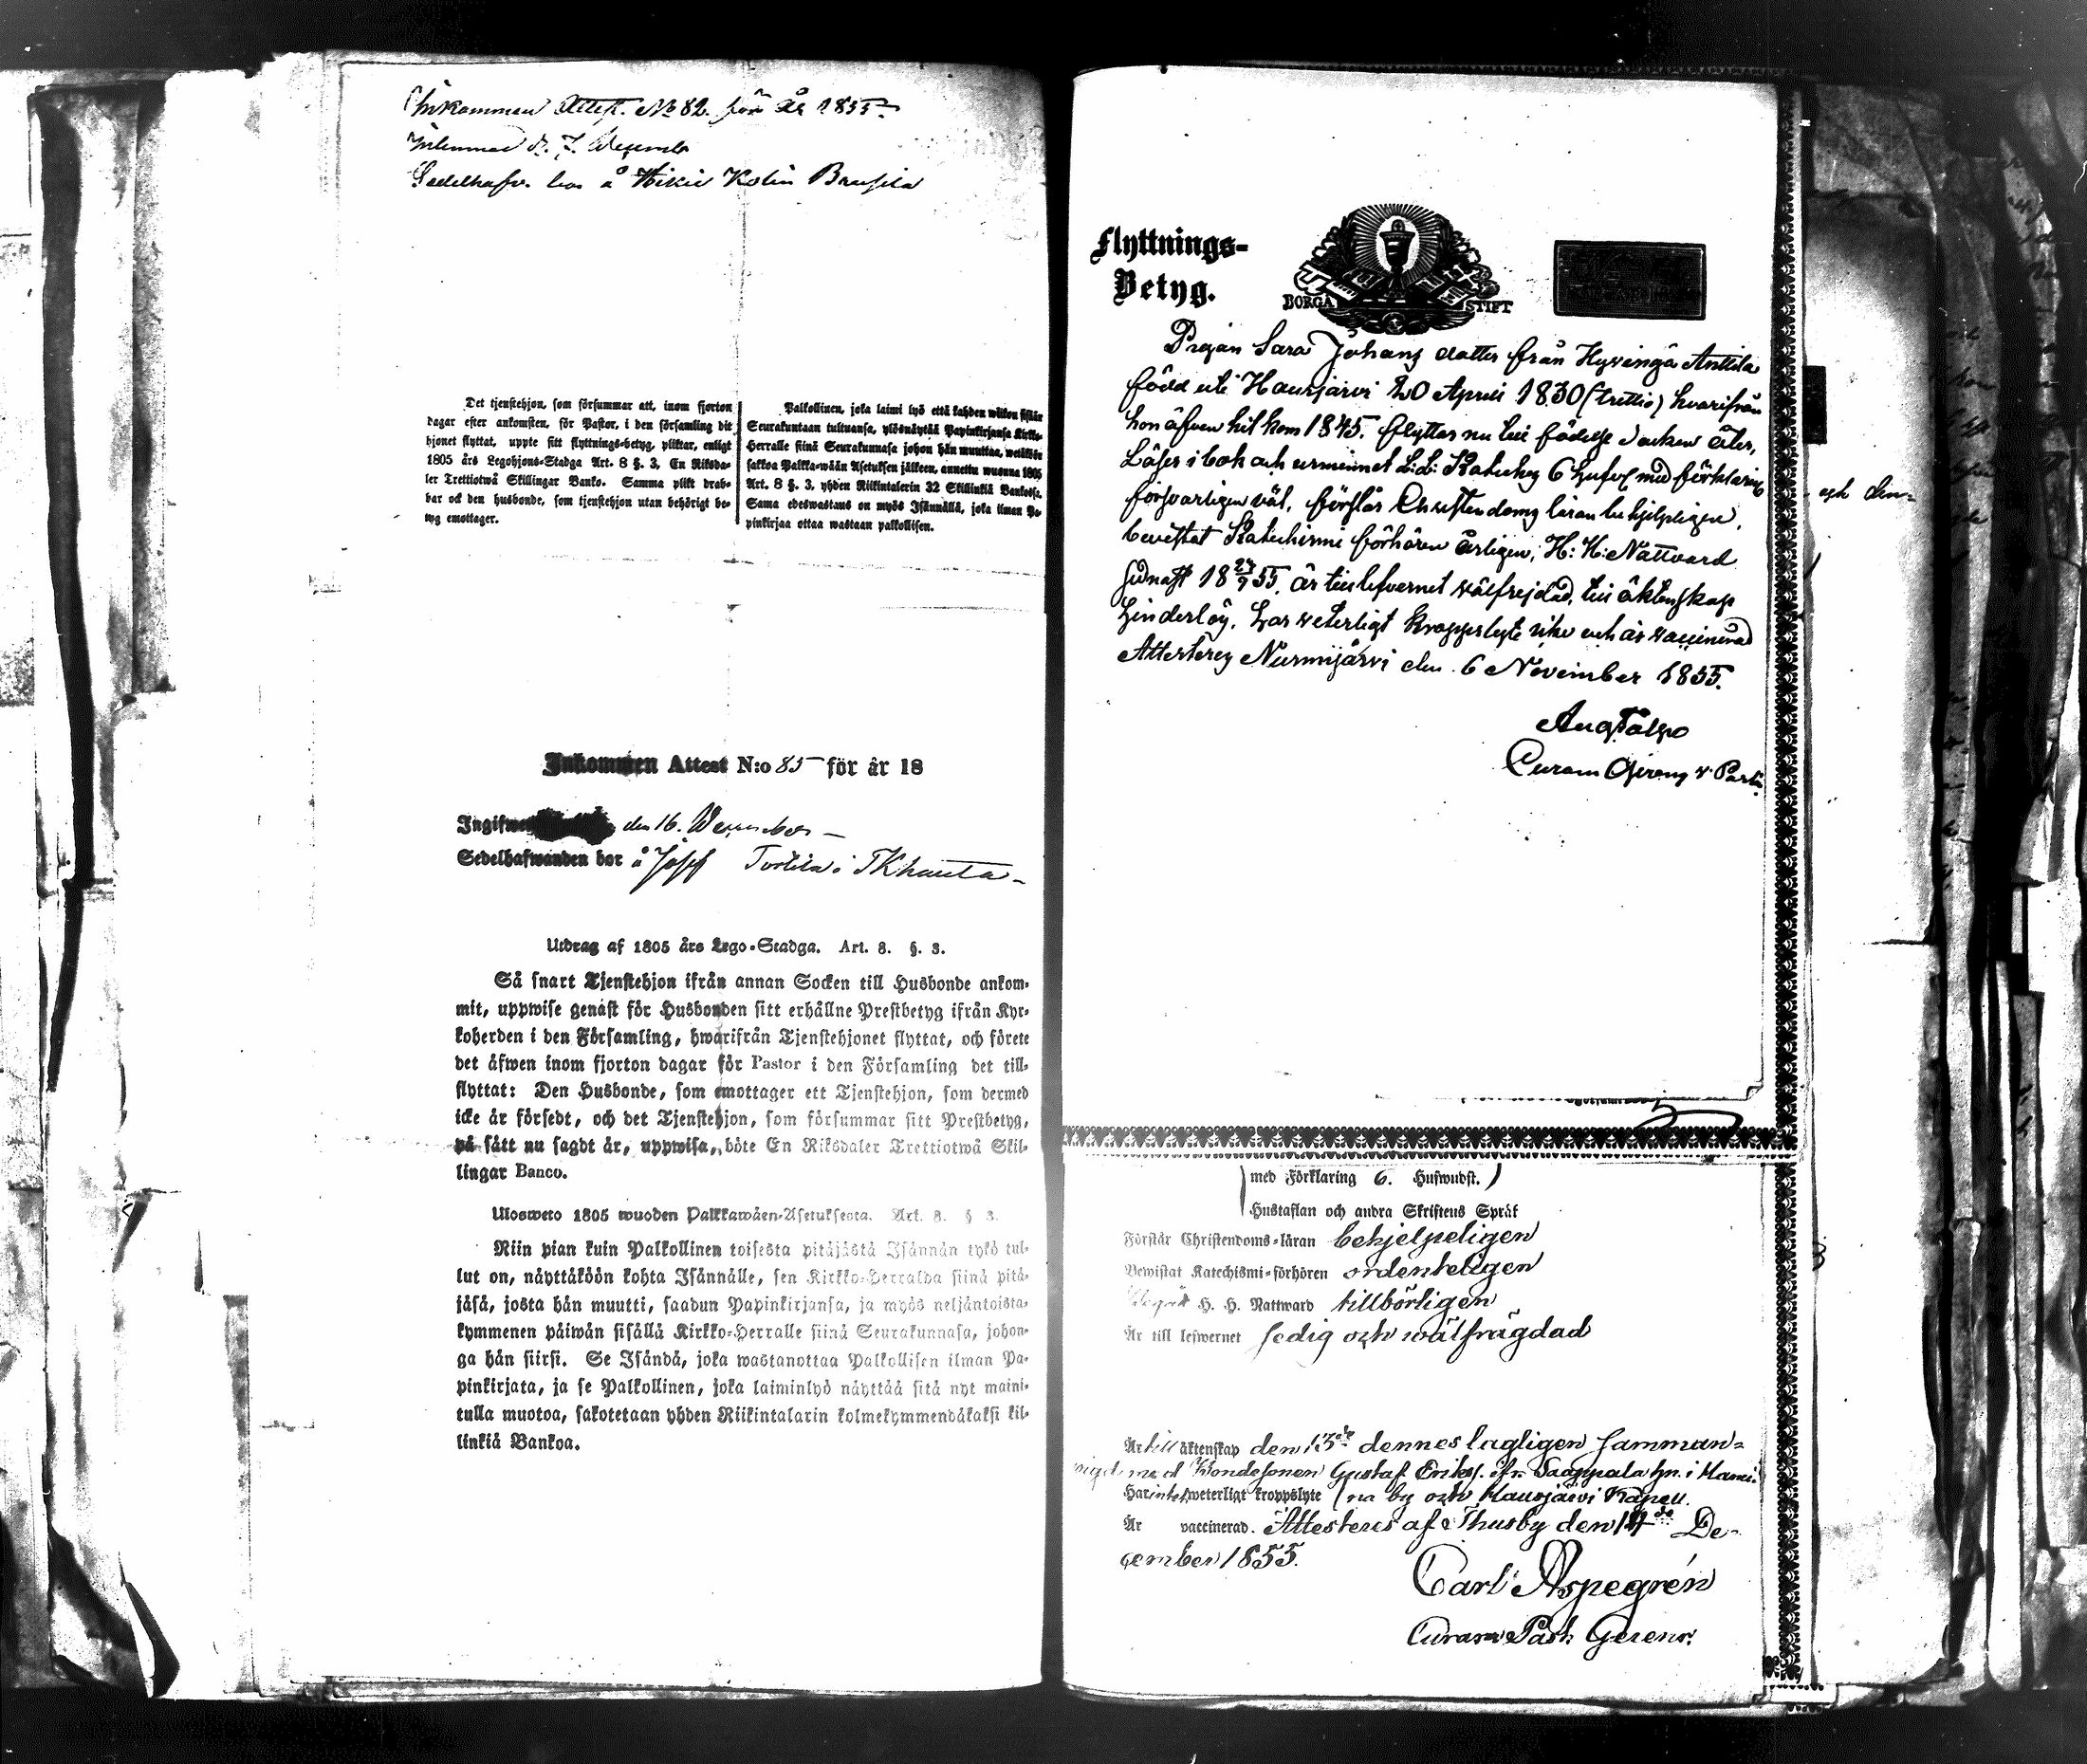 Inkommen Attest. No 82. för år 1855.
Inlemnad d. 7. December
Sedelhafv. bor å Hikiä Kolin
Det tjenstehjon, som försummar att, inom fjorton
dagar efter ankomsten, för Pastor, i den församling dit
hjonet flyttat, uppte sitt flyttnings-betyg, pliktar, enligt
1805 års Legohjons-Stadga Art. 8 §. 3, En Riksda-
ler Trettiotwå Skillingar Banko. Samma plikt drab-
bar ock den husbonde, som tjenstehjon utan behörigt be-
tyg emottager.
Palkollinen, joka laimi lyö että kahden wiikon sisään
Seurakuntaan tultuansa, ylösnäytää Papinkirjansa Kirko-
Herralle siinä Seurakunnasa johon hän muuttaa, wetäköön
sakkoa Palkka-wään Asetuksen jälkeen, annettu wuonna 1805
Art. 8 §. 3, yhden Riikintalerin 32 Skillinkiä Bankosa.
Sama edeswastaus on myös Isännällä, joka ilman Pa-
pinkirjaa ottaa wastaan palkollisen.
Inkommen Attest N:o 85 för år 18
Ingifwen den 16. December
Sedelhafwanden bor å Josef Torhola i
Utdrag af 1805 års Lego-Stadga. Art. 8. §. 3.
Så snart Tjenstehjon ifrån annan Socken till Husbonde ankom-
mit, uppwise genast för Husbonden sitt erhållne Prestbetyg ifrån Kyr-
koherden i den Församling, hwarifrån Tjenstehjonet flyttat, och förete
det äfwen inom fjorton dagar för Pastor i den Församling det till-
flyttat: Den Husbonde, som emottager ett Tjenstehjon, som dermed
icke är försedt, och det Tjenstehjon, som försummar sitt Prestbetyg,
på sätt nu sagdt är, uppwisa, böte En Riksdaler Trettiotwå Skil-
lingar Banco.
Ulosweto 1805 wuoden Palkkawäen-Asetuksesta. Art. 8. § 3.
Niin pian kuin Palkollinen toisesta pitäjästä Isännän tykö tul-
lut on, näyttäköön kohta Isännälle, sen Kirkko-Herralda siinä pitä-
jäsä, josta hän muutti, saadun Papinkirjansa, ja myös neljäntoista-
kymmenen päiwän sisällä Kirkko-Herralle siinä Seurakunnasa, johon-
ga hän siirsi. Se Isändä, joka wastanottaa Palkollisen ilman Pa-
pinkirjata, ja se Palkollinen, joka laiminlyö näyttää sitä nyt maini-
tulla muotoa, sakotetaan yhden Riikintalarin kolmekymmendäkaksi kil-
linkiä Bankoa.
Flyttnings-
Betyg.
BORGÅ STIFT
Pigan Sara Johans dotter från Hyvingä Anttila
född uti Hausjärvi 20 April 1830 (trettio) hvarifrån
hon äfven hit kom 1845. flyttar nu till födelse socken åter,
Läser i bok och urminnet L: L: Kateches 6 hufvs med förklaring
försvarligen väl, förstår Christendoms läran behjelpligen,
bevistat Katechismi förhören årligen, H: H: Nattvard
sednast 18 23/9 55. är till lefvernet välfrejdad, till äktenskap
hinderlös, har veterligt kroppslyte icke och är vaccinerad
Attesteras Nurmijärvi den 6 November 1855.
Curam Gerens v. Past.
och den-
med Förklaring 6. Hufwudst.
Hustaflan och andra Skriftens Språk
Förstår Christendoms-läran behjelpeligen
Bewistat Katechismi-förhören ordenteligen
Begått H. H. Nattward tillbörligen
Är till lefwernet sedig och wälfrägdad
Är till äktenskap den 13de dennes lagligen samman-
wigd med Bondesonen Gustaf Eriks. ifr. Saappala hn. i Hami-
Har intet weterligt kroppslyte na by och Hausjärvi Kapell.
Är vaccinerad. Attesteras af Thusby den 14de De-
cember 1855.
Carl Aspegrén
Curam Past. Gerens.